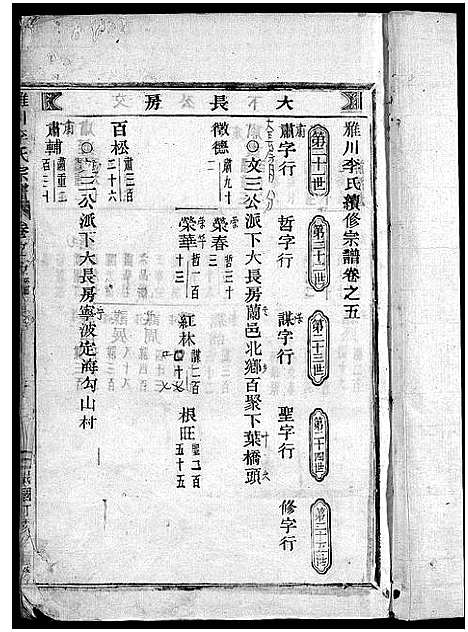 大長房
雅川李氏續修宗譜卷之五
第二十一世
肅字行
第二十二世
哲字行
第二十三世
謀字行
第二十四世
聖字行
第二十五世
修字行
○文三公派下大長房蘭邑北鄉百聚下葉橋頭
徵德
肅九十
榮春
哲三十
榮華
哲一百
十三
紅林
謀二百
根旺
聖二百
五十五
○文三公派下大長房寧波定海勾山村
百松
肅三百
二十六
肅輔